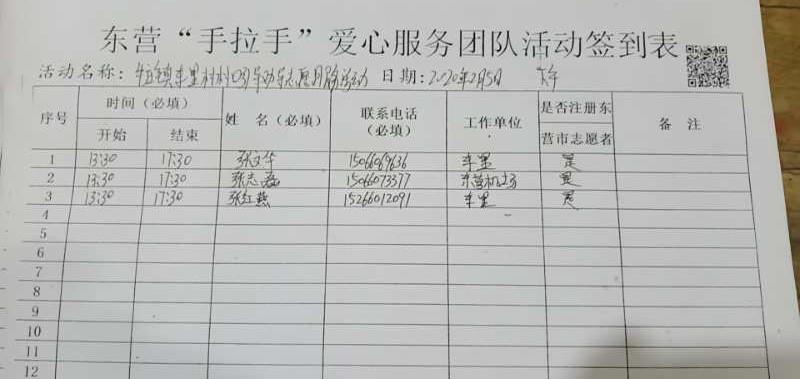 东营“手拉手”爱心服务团队活动签到表
活动名称： 车里村村口 志愿服务活动 日期：2020年2月5日 下午
序号 时间（必填） 姓 名（必填） 联系电话（必填） 工作单位 是否注册东营市志愿者 备 注
开始 结束
1 13:30 17:30 张文华 15066069636 车里 是
2 13:30 17:30 张志磊 15066073377 东营机场 是
3 13:30 17:30 张红燕 15266012091 车里 是
4
5
6
7
8
9
10
11
12